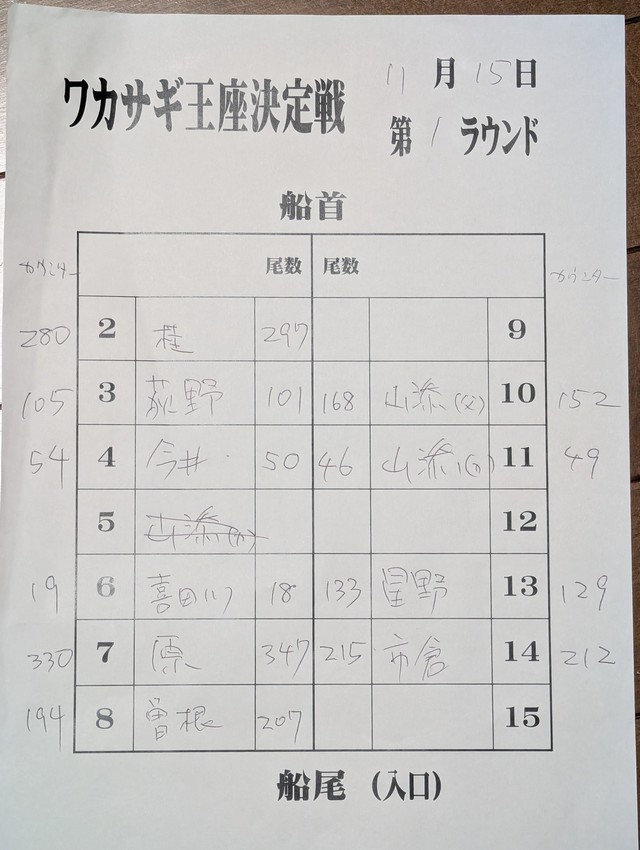 ワカサギ王座決定戦
11月15日
第1ラウンド
船首
カウンター 尾数 尾数 カウンター
280 2 桂 297 9
105 3 荻野 101 168 山添(父) 10 152
54 4 今井 50 46 山添 11 49
5 山添 12
19 6 喜田川 18 133 星野 13 129
330 7 原 347 215 市倉 14 212
194 8 曽根 207 15
船尾(入口)